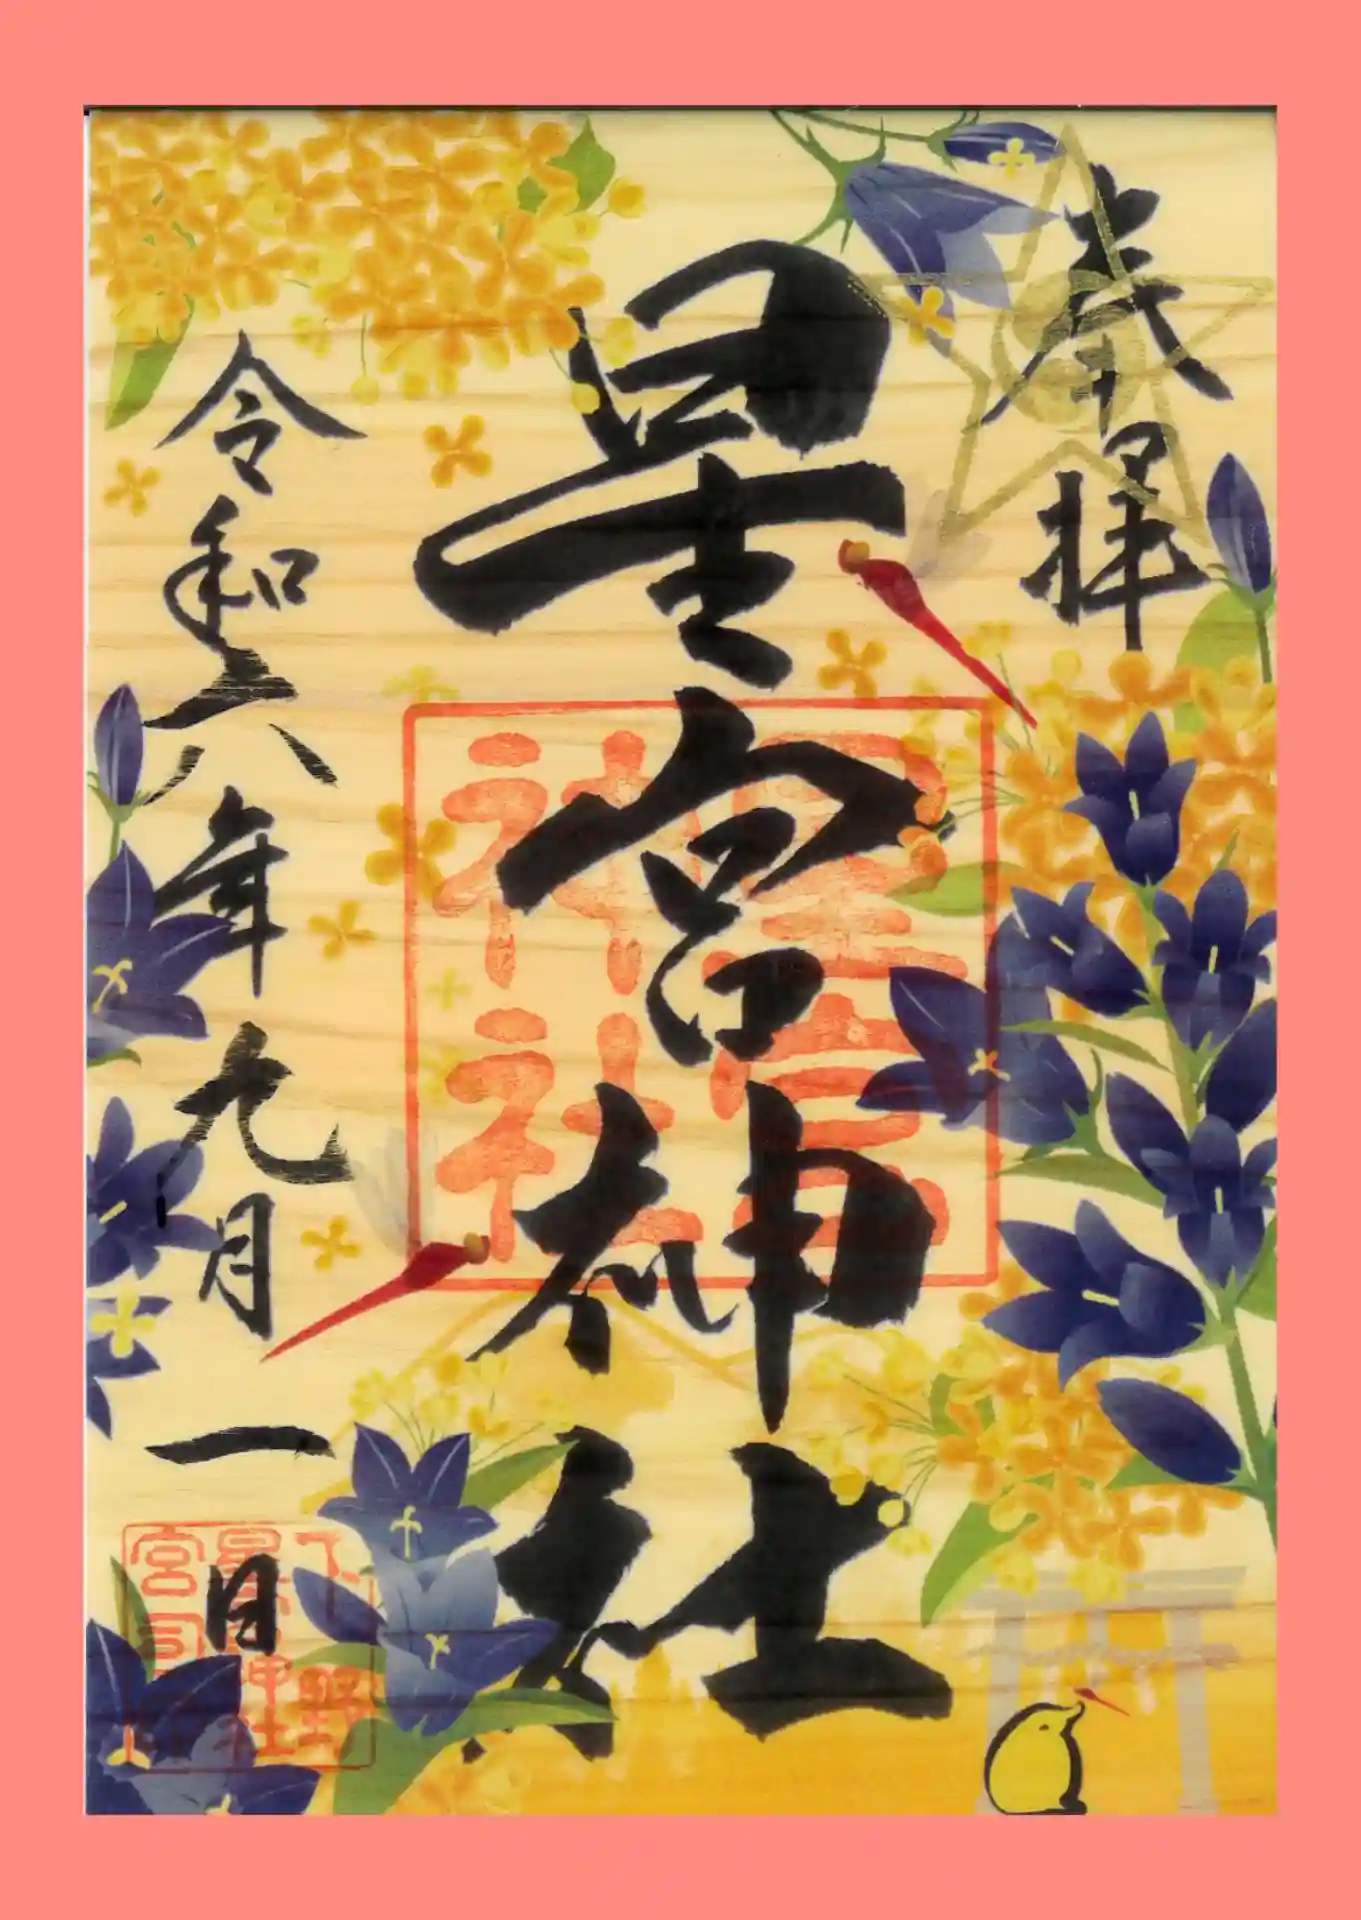 奉拝
星宮神社
星宮
神社
令和六年九月一日
下野
星宮神社
宮司